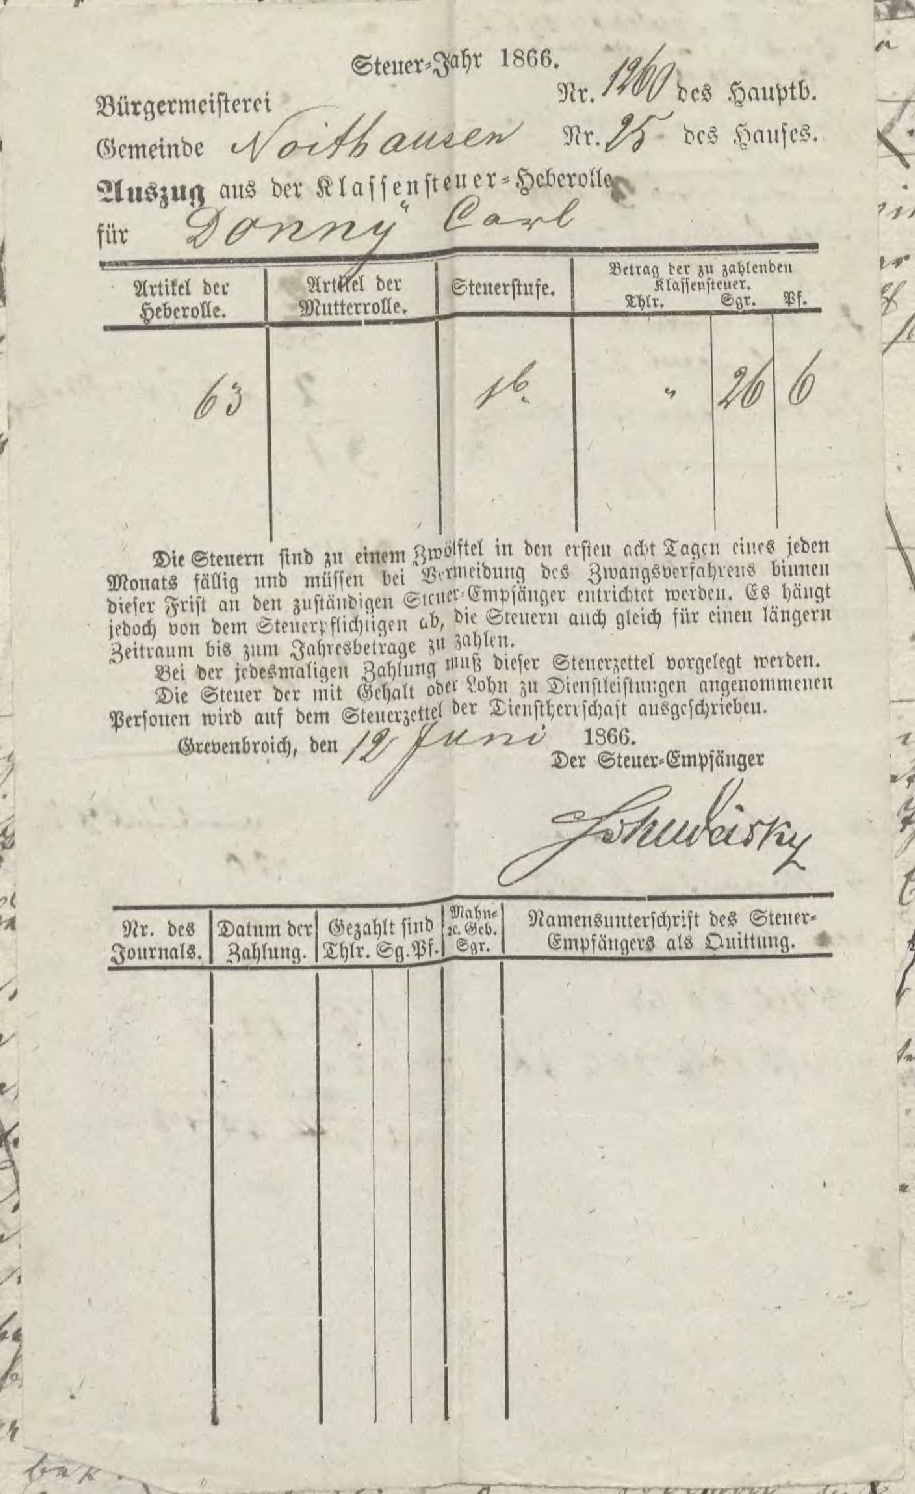 Steuer-Jahr 1866.
Bürgermeisterei Nr. 1260 des Hauptb.
Gemeinde Noithausen Nr. 25 des Hauses.
Auszug aus der Klassensteuer-Heberolle
für Donny Carl
Artikel der Heberolle. Artikel der Mutterrolle. Steuerstufe. Betrag der zu zahlenden Klassensteuer.
Thlr. Sgr. Pf.
63 1b. " 26 6
Die Steuern sind zu einem Zwölftel in den ersten acht Tagen eines jeden
Monats fällig und müssen bei Vermeidung des Zwangsverfahrens binnen
dieser Frist an den zuständigen Steuer-Empfänger entrichtet werden. Es hängt
jedoch von dem Steuerpflichtigen ab, die Steuern auch gleich für einen längern
Zeitraum bis zum Jahresbetrage zu zahlen.
Bei der jedesmaligen Zahlung muß dieser Steuerzettel vorgelegt werden.
Die Steuer der mit Gehalt oder Lohn zu Dienstleistungen angenommenen
Personen wird auf dem Steuerzettel der Dienstherrschaft ausgeschrieben.
Grevenbroich, den 12 Juni 1866.
Der Steuer-Empfänger
Nr. des Journals. Datum der Zahlung. Gezahlt sind Thlr. Sg. Pf. Mahn- ꝛc. Geb. Sgr. Namensunterschrift des Steuer-
Empfängers als Quittung.